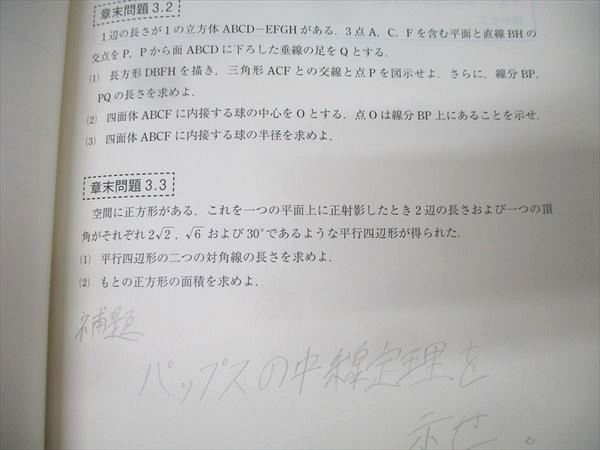 章末問題 3.2
1辺の長さが1の立方体 ABCD−EFGH がある．3点 A，C，F を含む平面と直線 BH の
交点を P，P から面 ABCD に下ろした垂線の足を Q とする．
(1) 長方形 DBFH を描き，三角形 ACF との交線と点 P を図示せよ．さらに，線分 BP，
PQ の長さを求めよ．
(2) 四面体 ABCF に内接する球の中心を O とする．点 O は線分 BP 上にあることを示せ．
(3) 四面体 ABCF に内接する球の半径を求めよ．
章末問題 3.3
空間に正方形がある．これを一つの平面上に正射影したとき2辺の長さおよび一つの頂
角がそれぞれ 2√2，√6 および 30°であるような平行四辺形が得られた．
(1) 平行四辺形の二つの対角線の長さを求めよ．
(2) もとの正方形の面積を求めよ．
補題
パップスの中線定理を
示せ。